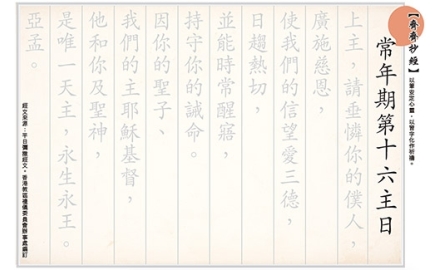 【齊齊抄經】
以筆安定心靈，以寫字化作祈禱。
常年期第十六主日
上主，請垂憐你的僕人，
廣施慈恩，
使我們的信望愛三德，
日趨熱切，
並能時常醒寤，
持守你的誡命。
因你的聖子、
我們的主耶穌基督，
他和你及聖神，
是唯一天主，永生永王。
亞孟。
經文來源：平日彌撒經文。香港教區禮儀委員會辦事處編訂